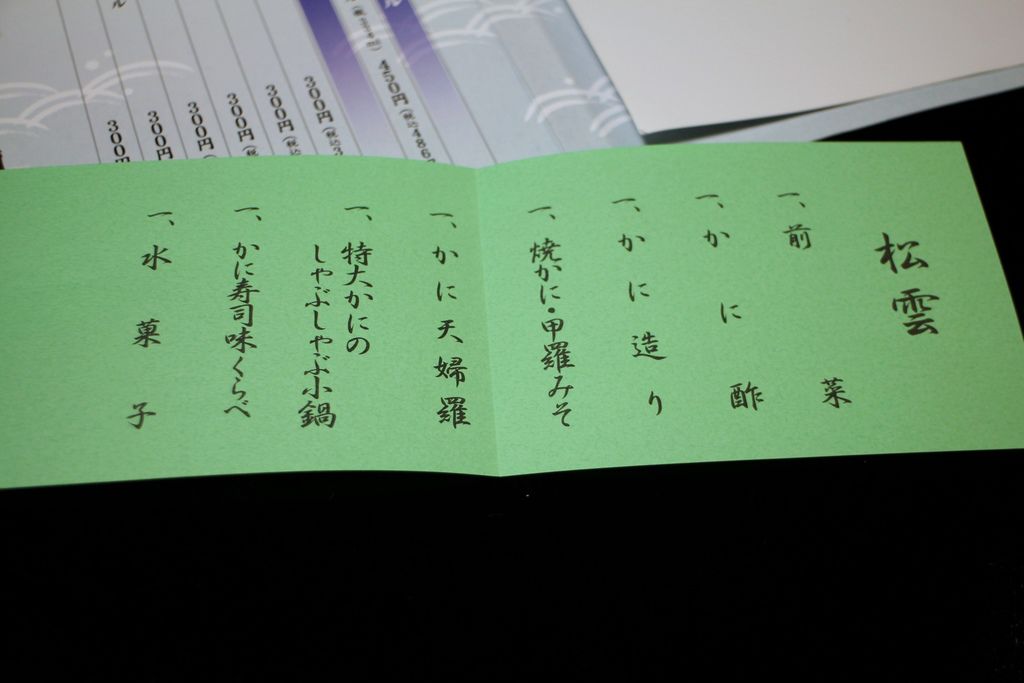 松雲
一、前菜
一、かに酢
一、かに造り
一、焼かに・甲羅みそ
一、かに天婦羅
一、特大かにの
しゃぶしゃぶ小鍋
一、かに寿司味くらべ
一、水菓子
450円(税込486
300円(税込3
300円(税込
300円(税
300円
300円
300円